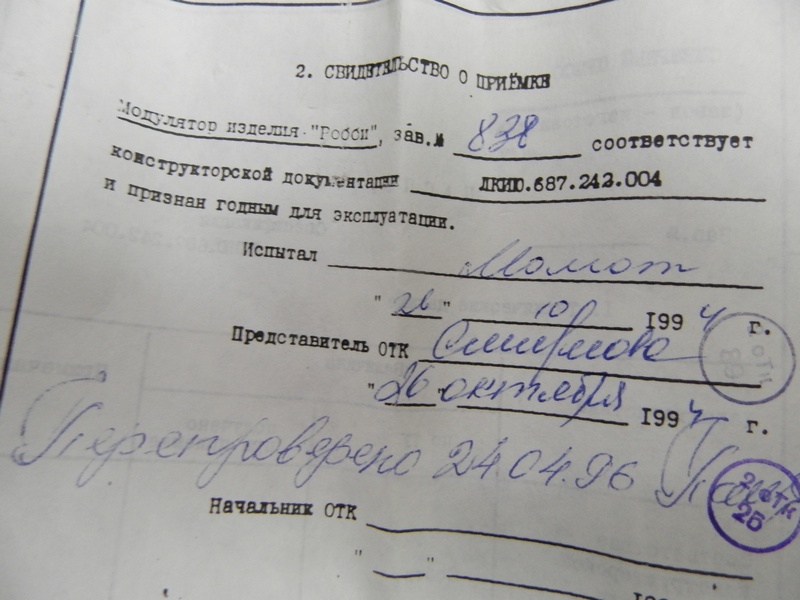 2. СВИДЕТЕЛЬСТВО О ПРИЁМКЕ
Модулятор изделия "Робби", зав.№ 838 соответствует
конструкторской документации ЛКИЮ.687.242.004
и признан годным для эксплуатации.
Испытал Момот
"26" 10 1994 г.
Представитель ОТК Смирнова
"26" октября 1994 г.
Перепроверено 24.04.96
Начальник ОТК
" "
ОТК
ОТК
2Б